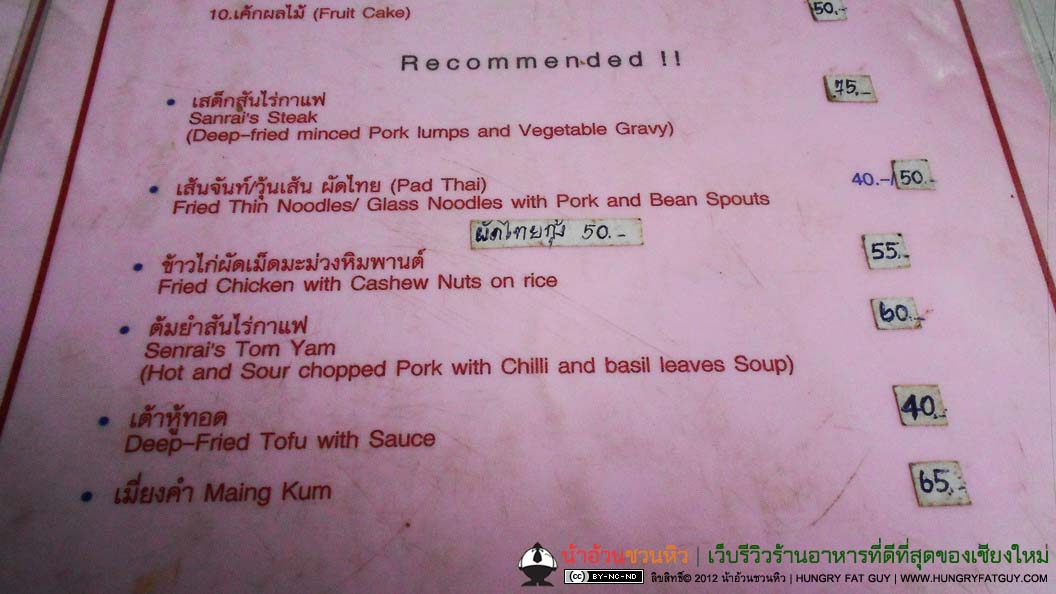 10.เค้กผลไม้ (Fruit Cake) 50.-
Recommended !!
• เสต็กสันไร่กาแฟ 75.-
Sanrai's Steak
(Deep-fried minced Pork lumps and Vegetable Gravy)
• เส้นจันท์/วุ้นเส้น ผัดไทย (Pad Thai) 40.-/50.-
Fried Thin Noodles/ Glass Noodles with Pork and Bean Spouts
ผัดไทยกุ้ง 50.-
• ข้าวไก่ผัดเม็ดมะม่วงหิมพานต์ 55.-
Fried Chicken with Cashew Nuts on rice
• ต้มยำสันไร่กาแฟ 60.-
Senrai's Tom Yam
(Hot and Sour chopped Pork with Chilli and basil leaves Soup)
• เต้าหู้ทอด 40.-
Deep-Fried Tofu with Sauce
• เมี่ยงคำ Maing Kum 65.-
น้าอ้วนชวนหิว | เว็บรีวิวร้านอาหารที่ดีที่สุดของเชียงใหม่
cc BY-NC-ND ลิขสิทธิ์© 2012 น้าอ้วนชวนหิว | HUNGRY FAT GUY | WWW.HUNGRYFATGUY.COM